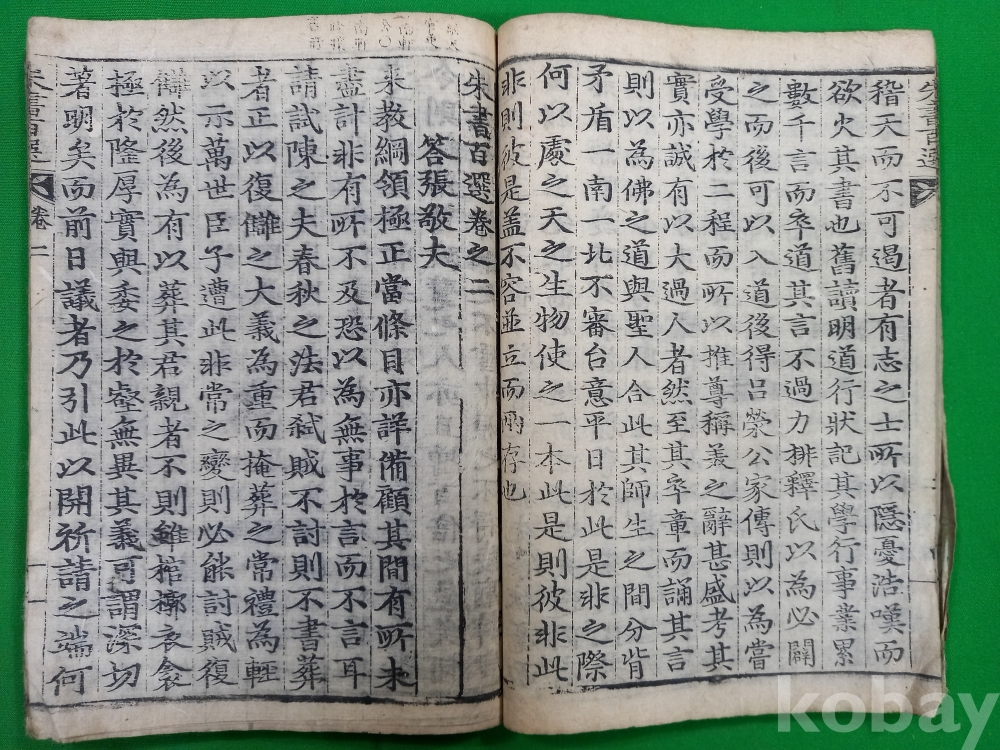 稽天而不可遏者有志之士所以隱憂浩嘆而
欲火其書也舊讀明道行狀記其學行事業累
數千言而卒道其言不過力排釋氏以為必闢
之而後可以入道後得呂榮公家傳則以為嘗
受學於二程而所以推尊稱美之辭甚盛考其
實亦誠有以大過人者然至其卒章而誦其言
則以為佛之道與聖人合此其師生之間分背
矛盾一南一北不審台意平日於此是非之際
何以處之天之生物使之一本此是則彼非此
非則彼是盖不容並立而兩存也
朱書百選卷之二
答張敬夫
来教綱領極正當條目亦詳備顧其間有所未
盡計非有所不及恐以為無事於言而不言耳
請試陳之夫春秋之法君弑賊不討則不書葬
者正以復讎之大義為重而掩葬之常禮為輕
以示萬世臣子遭此非常之變則必能討賊復
讎然後為有以葬其君親者不則雖棺槨衣衾
極於隆厚實與委之於壑無異其義可謂深切
著明矣而前日議者乃引此以開祈請之端何
朱書百選
卷二
kobay